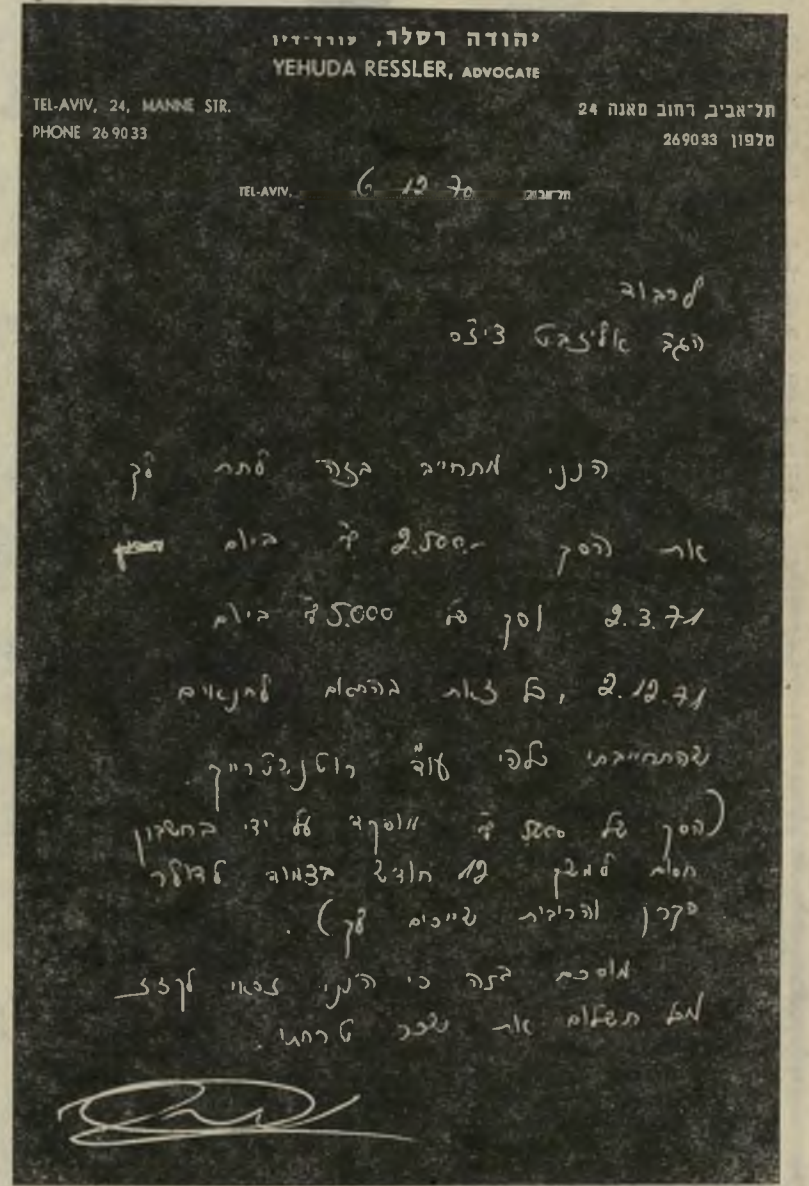 יהודה רסלר, עורך-דין
YEHUDA RESSLER, ADVOCATE
TEL-AVIV, 24, MANNE STR.
תל-אביב, רחוב מאנה 24
PHONE 269033
טלפון 269033
TEL-AVIV, 6 12 70 תל-אביב
לכבוד
הגב' אליזבט
הנני מתחייב בזה לתת לך
את הסך 2.500.- ל"י ביום
2.3.71 וסך של 5.000 ל"י ביום
2.12.71, כל זאת בהתאם לתנאים
שהתחייבתי כלפי עו"ד רוטנשטרייך.
(הסך של 5000 ל"י מופקד על ידי בחשבון
חסום למשך 12 חודש בצמוד לדולר
הקרן והריבית שייכים לך).
מוסכם בזה כי הנני זכאי לקזז
מכל תשלום את שכר טרחתי.